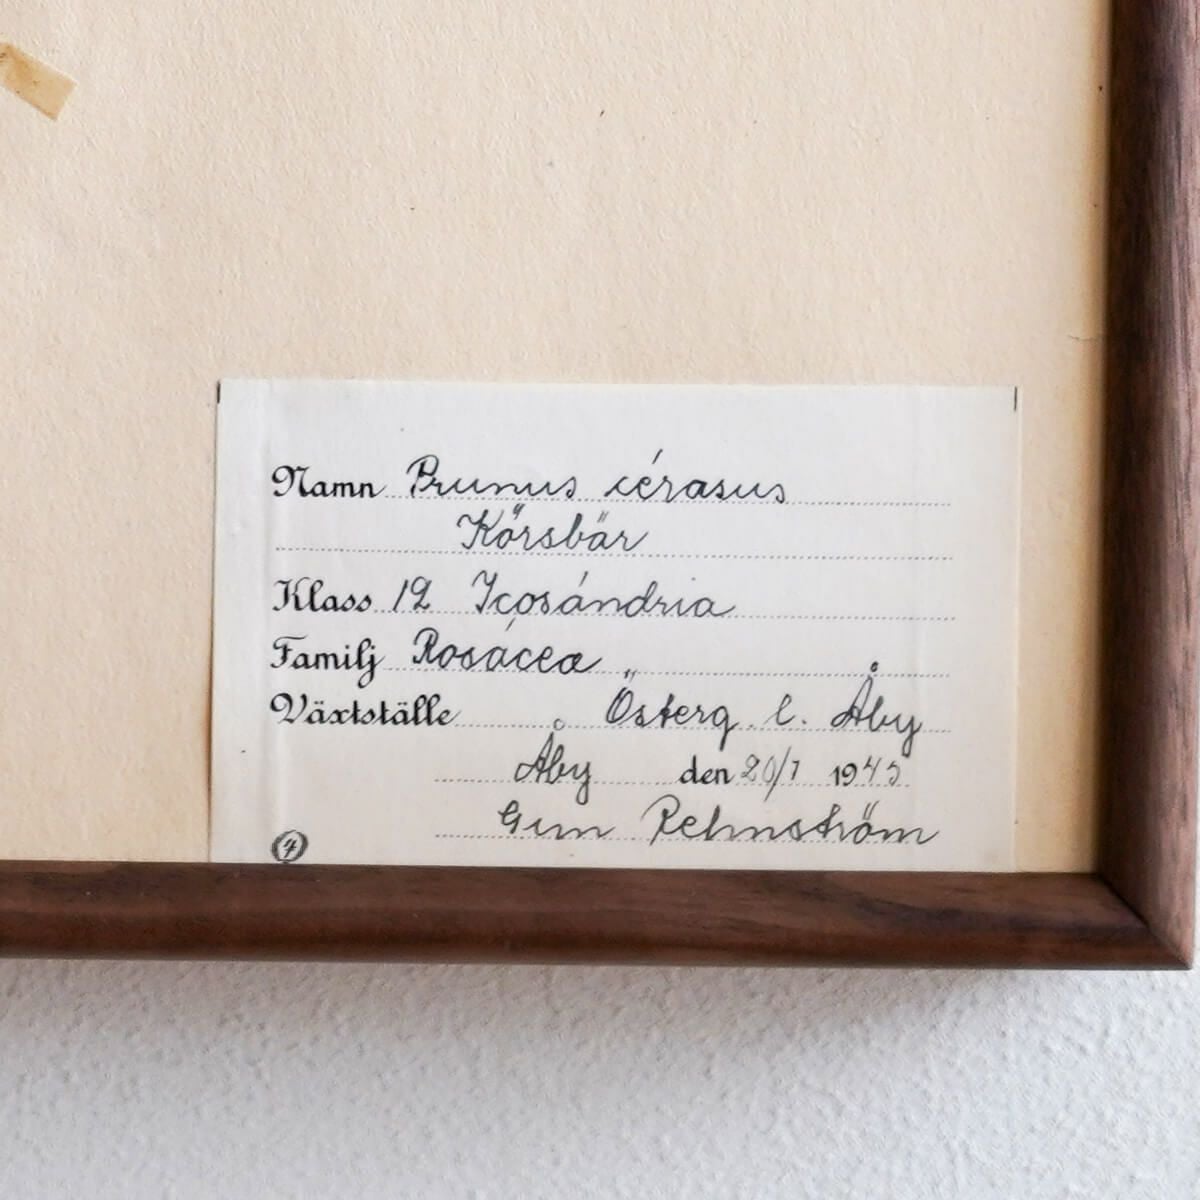 Namn Prunus cérasus
Körsbär
Klass 12 Icosándria
Familj Rosáceæ
Växtställe Österg. l. Åby
Åby den 20/7 1945
Gun Rehnström
4